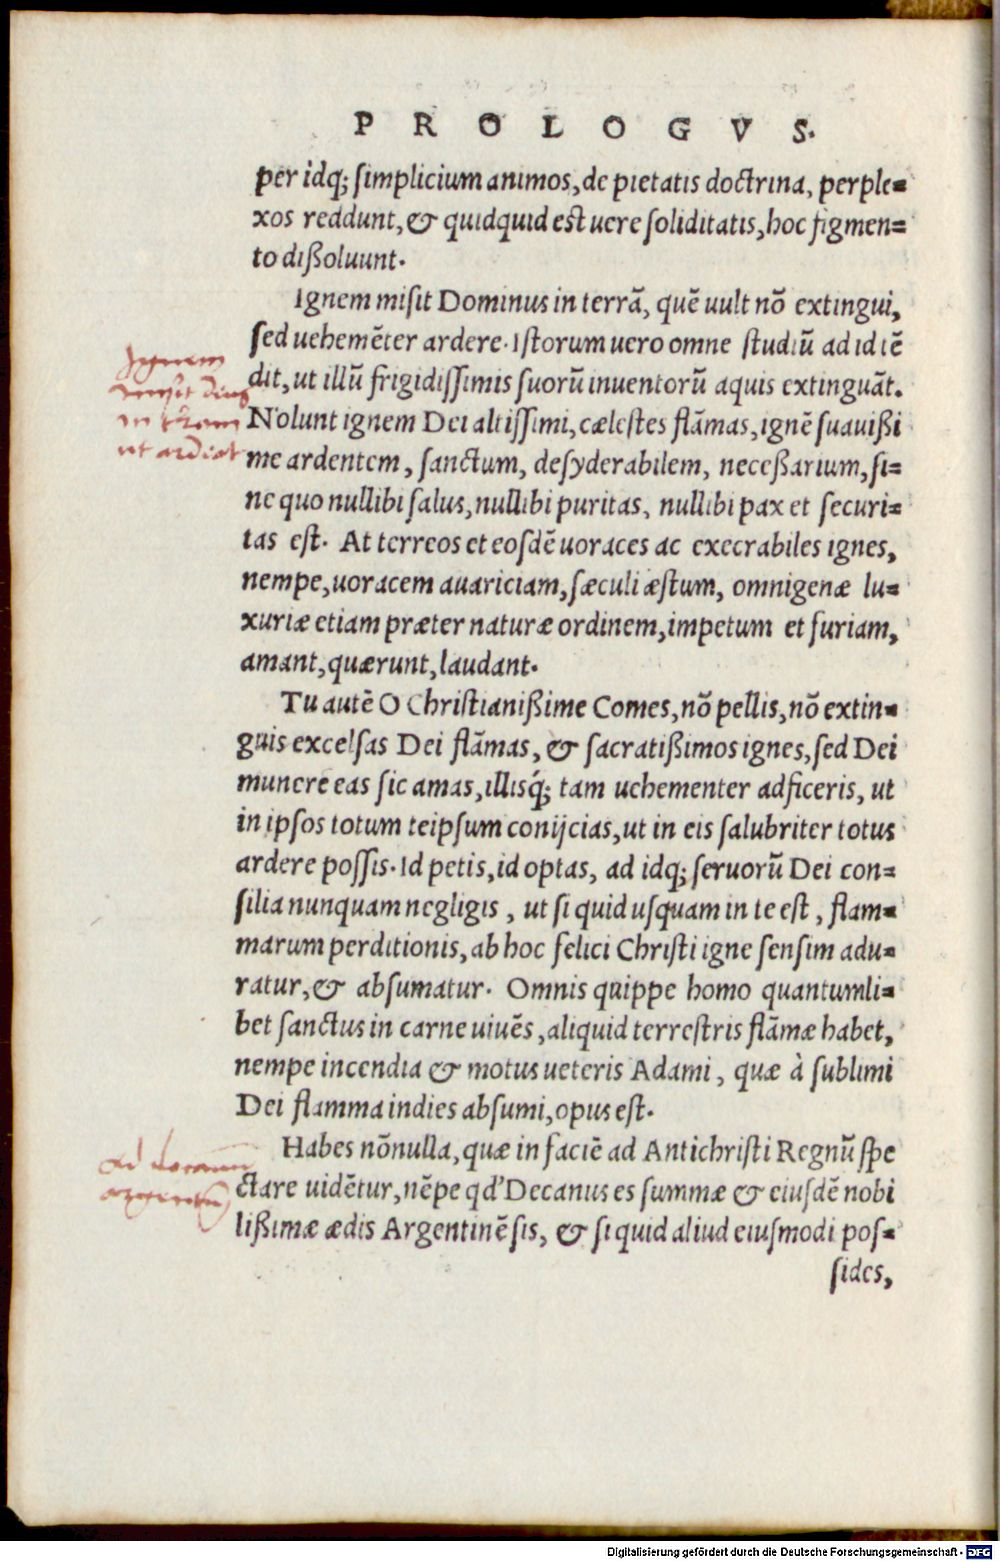 PROLOGVS.
per idq; ſimplicium animos, de pietatis doctrina, perple=
xos reddunt, & quidquid est uere ſoliditatis, hoc figmen=
to dißoluunt.
Ignem miſit Dominus in terrã, quẽ uult nõ extingui,
ſed uehemẽter ardere. Iſtorum uero omne ſtudiũ ad id tẽ
dit, ut illũ frigidiſſimis ſuorũ inuentorũ aquis extinguãt.
Nolunt ignem Dei altiſſimi, cæleſtes flãmas, ignẽ ſuauißi
me ardentem, ſanctum, deſyderabilem, neceßarium, ſi=
ne quo nullibi ſalus, nullibi puritas, nullibi pax et ſecuri=
tas eſt. At terreos et eoſdẽ uoraces ac execrabiles ignes,
nempe, uoracem auariciam, ſæculi æſtum, omnigenæ lu=
xuriæ etiam præter naturæ ordinem, impetum et furiam,
amant, quærunt, laudant.
Tu autẽ O Chriſtianißime Comes, nõ pellis, nõ extin=
guis excelſas Dei flãmas, & ſacratißimos ignes, ſed Dei
munere eas ſic amas, illisq́; tam uehementer adficeris, ut
in ipſos totum teipſum conijcias, ut in eis ſalubriter totus
ardere poſſis. Id petis, id optas, ad idq; ſeruorũ Dei con=
ſilia nunquam negligis, ut ſi quid uſquam in te eſt, flam=
marum perditionis, ab hoc felici Chriſti igne ſenſim adu=
ratur, & abſumatur. Omnis quippe homo quantumli=
bet ſanctus in carne uiuẽs, aliquid terreſtris flãmæ habet,
nempe incendia & motus ueteris Adami, quæ à ſublimi
Dei flamma indies abſumi, opus eſt.
Habes nõnulla, quæ in faciẽ ad Antichriſti Regnũ ſpe
ctare uidẽtur, nẽpe qd' Decanus es ſummæ & eiuſdẽ nobi
lißimæ ædis Argentinẽſis, & ſi quid aliud eiuſmodi poſ=
ſides,
Ignem
misit dns
ut ardeat
Digitalisierung gefördert durch die Deutsche Forschungsgemeinschaft - DFG